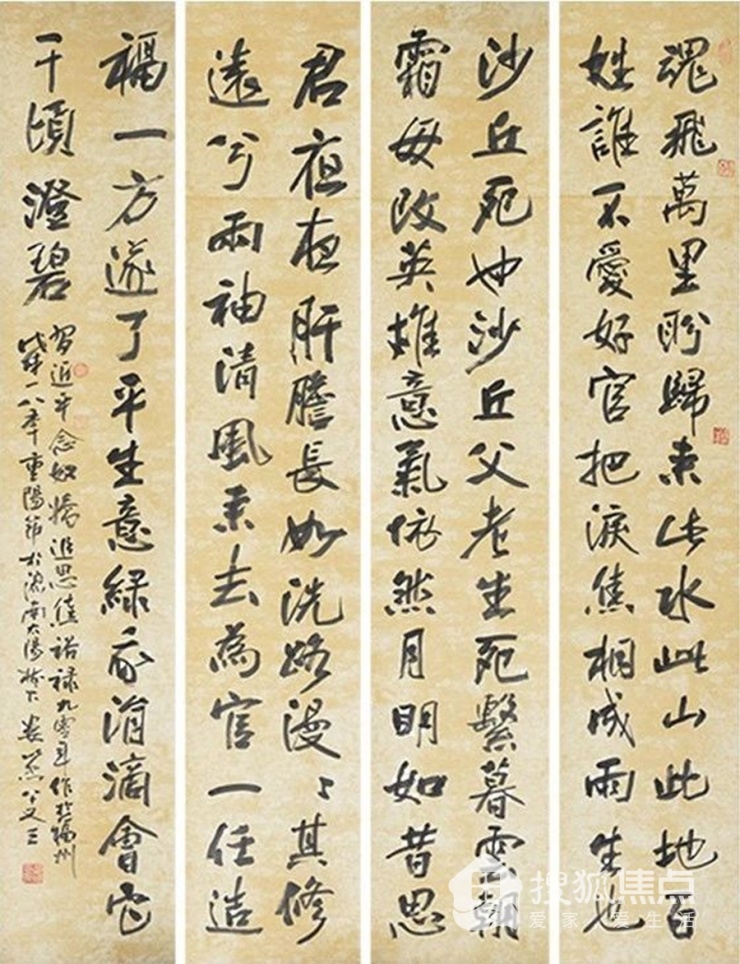 魂飛萬里盼歸來此水此山此地百
姓誰不愛好官把淚焦桐成雨生也
沙丘死也沙丘父老生死繫暮雪朝
霜毋改英雄意氣依然月明如昔思
君夜夜肝膽長如洗路漫〻其修
遠兮兩袖清風來去為官一任造
福一方遂了平生意綠我涓滴會它
千頃澄碧
習近平念奴嬌追思焦裕祿九零年作於福州
戊戌一八年重陽節於濟南
搜狐焦点
爱家 爱生活